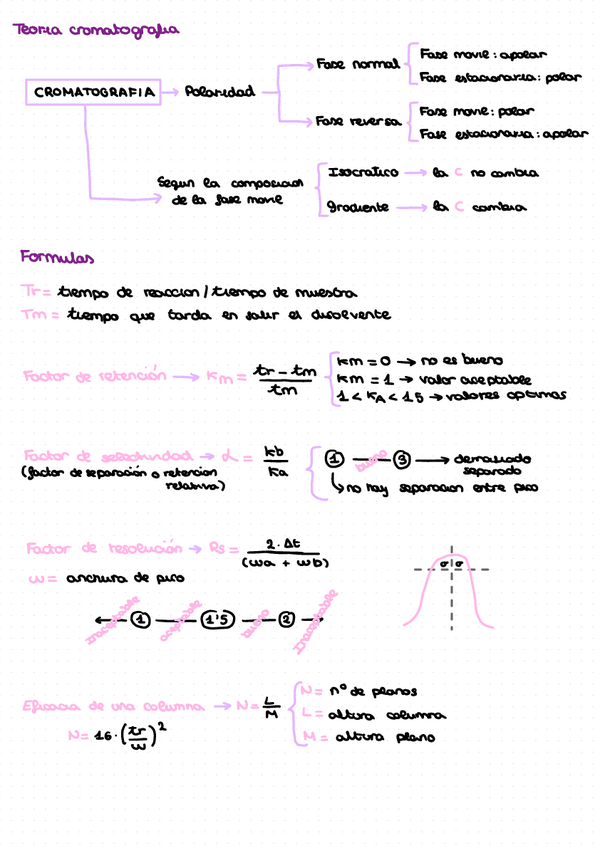 Teoria cromatografia
CROMATOGRAFIA → Polaridad
Fase normal
Fase movil: apolar
Fase estacionaria: polar
Fase reversa
Fase movil: polar
Fase estacionaria: apolar
Segun la composicion
de la fase movil
Isocratico → la C no cambia
Gradiente → la C cambia
Formulas
Tr = tiempo de reaccion / tiempo de muestra
Tm = tiempo que tarda en salir el disolvente
Factor de retención → Km = tr - tm / tm
Km = 0 → no es bueno
Km = 1 → valor aceptable
1 < KA < 15 → valores optimos
Factor de selectividad → α = kb / Ka
(factor de separación o retencion
relativa)
1 — bueno — 3 → demasiado
separado
↳ no hay separacion entre pico
Factor de resolución → Rs = 2 · Δt / (wa + wb)
w = anchura de pico
σ σ
Inaceptable 1 aceptable 1'5 bueno 2 Inaceptable
Eficacia de una columna → N = L / M
N = nº de planos
L = altura columna
M = altura plano
N = 16 · (tr / w)²